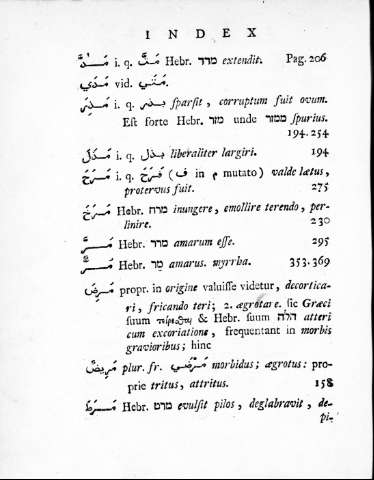 INDEX
مَدَّ i. q. مَتَّ Hebr. מדד extendit. Pag. 206
مَدَي vid. مَتَي.
مَذِرَ i. q. بذر sparsit, corruptum fuit ovum.
Est forte Hebr. מזר unde ממזר spurius.
194. 254
مَذَلَ i. q. بذل liberaliter largiri. 194
مَرَحَ i. q. فَرَحَ (ف in م mutato) valde lætus,
protervus fuit. 275
مَرَخَ Hebr. מרח inungere, emollire terendo, per-
linire. 230
مَرَّ Hebr. מרר amarum esse. 295
مُرٌّ Hebr. מַר amarus. myrrha. 353. 369
مَرِضَ propr. in origine valuisse videtur, decortica-
ri, fricando teri; 2. ægrotare. sic Græci
suum & Hebr. suum חלה atteri
cum excoriatione, frequentant in morbis
gravioribus; hinc
مَرِيضٌ plur. fr. مَرْضَي morbidus; ægrotus: pro-
prie tritus, attritus. 158
مَرَطَ Hebr. מרט evulsit pilos, deglabravit, de-
pi-